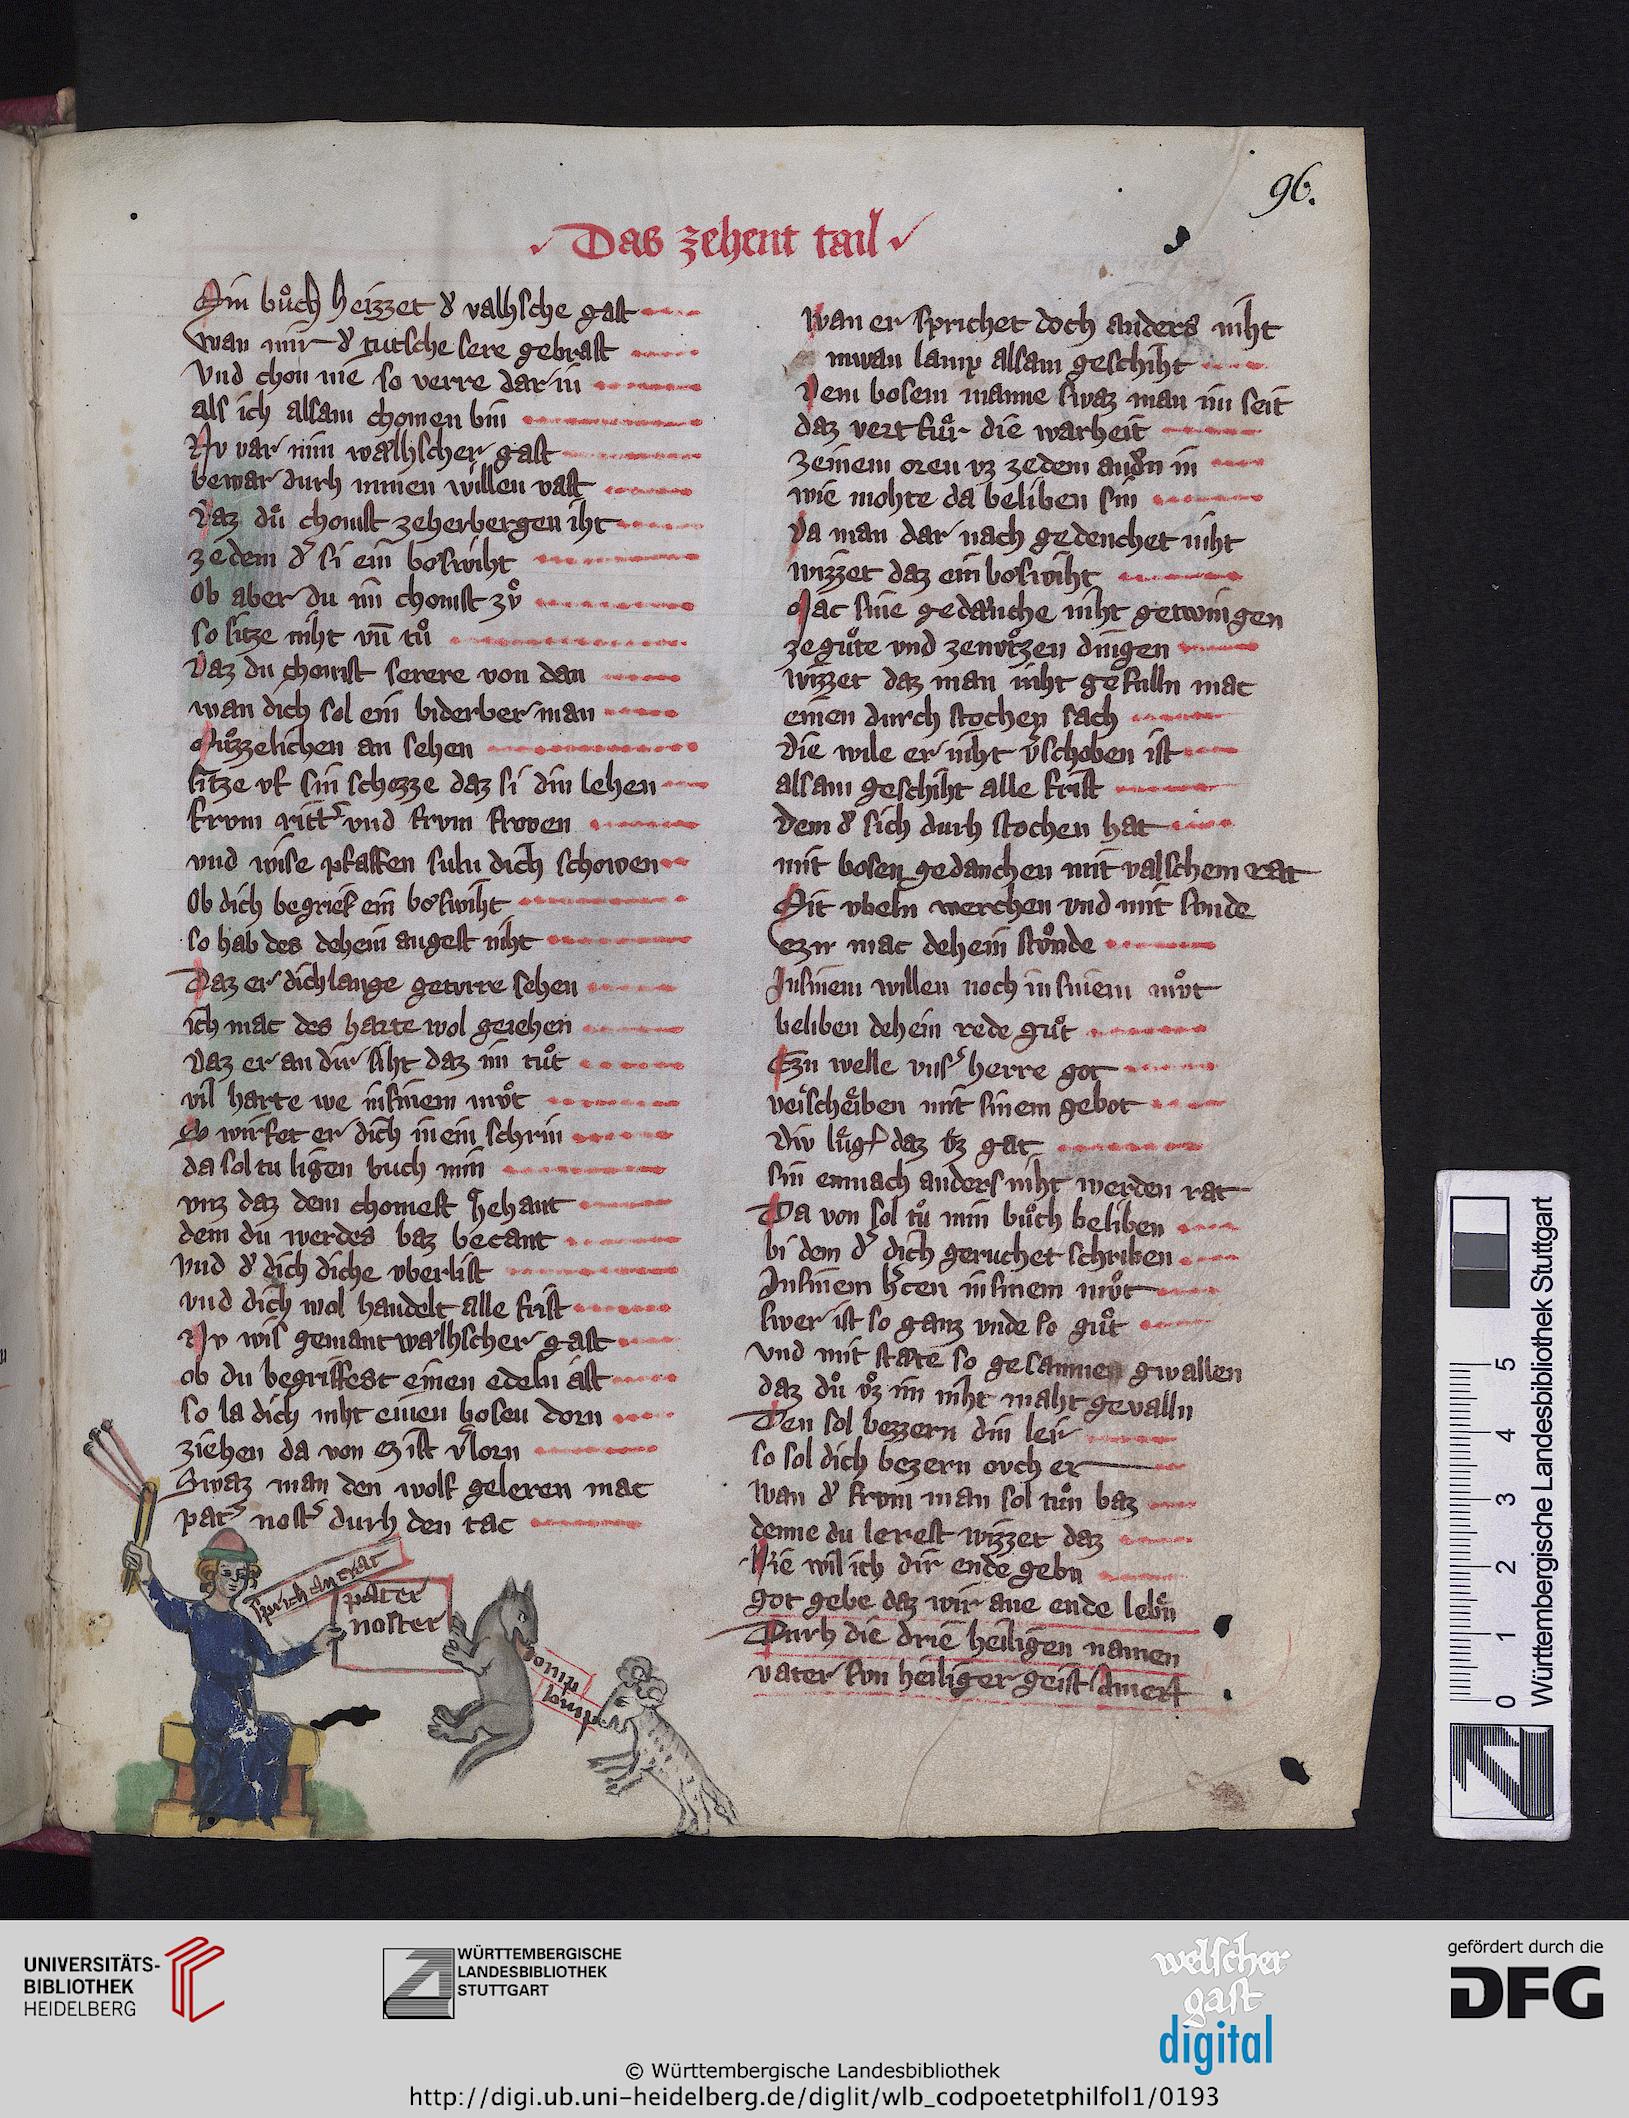 96.
Das zehent tail
Min bůch heizzet d' valhsche gast
wan mir d' tutsche sere gebrast
Vnd chom nie so verre dar in
als ich alsam chomen bin
Nv var min wälhscher gast
bewar durh minen willen vast
Daz dů chomst zeherbergen iht
ze dem d' si ein boswiht
Ob aber du im chomst zů
so sitze niht vn̄ tů
Daz du chomst serere von dan
wan dich sol ein biderber man
Můzzelichen an sehen
sitze vf sin schozze daz si din lehen
frvm ritt' vnd frvm frowen
vnd wise pfaffen suln dich schowen
Ob dich begrief ein boswiht
so hab des dehein angest niht
Daz er dich lange geturre sehen
ich mac des harte wol geiehen
Daz er an dir siht daz im tůt
vil harte we in sinem můt
So wirfet er dich in ein schrin
da sol tu ligen buch min
vnz daz dem chomest zehant
dem du werdes baz becant
Vnd d' dich diche vberlist
vnd dich wol handelt alle frist
Nv wis gemant wälhscher gast
ob du begriffest einen edeln ast
so la dich niht einen bosen dorn
ziehen da von Ez ist v'lorn
Swaz man den wolf geleren mac
pat' nost' durh den tac
wan er sprichet doch anders niht
niwan lamp alsam geschiht
Dem bosem manne swaz man im seit
daz vert fůr die warheit
zeinem oren vz zedem and'n in
wie mohte da beliben sin
Da man dar nach gedenchet niht
wizzet daz ein boswiht
Mac sine gedanche niht getwingen
ze gůte vnd zenvtzen dingen
wizzet daz man niht gefulln mac
einen durch stochen sach
die wile er niht v'schoben ist
alsam geschiht alle frist
dem d' sich durh stochen hat
mit bosen gedanchen mit valschem rat
Mit vbeln werchen vnd mit svnde
ezn mac dehein stvnde
In sinem willen noch in sinem mvt
beliben dehein rede gůt
Ezn welle vns' herre got
verscheiben mit sinem gebot
div lug daz vz gat
sin enmach anders niht werden rat
Da von sol tů min bůch beliben
bi dem d' dich geruchet schriben
In sinem h'cen in sinem mvt
swer ist so ganz vnde so gůt
vnd mit stäte so gesamnen gwallen
daz dů vz im niht maht gevalln
Den sol bezzern din leir
so sol dich bezern ovch er
wan d' frvm man sol tůn baz
denne du lerest wizzet daz
Hie wil ich dir ende gebn
got gebe daz wir ane ende lebn
Durh die drie heiligen namen
vater svn heiliger geist Amen
sprich an rat
pater
noster
lamp
lamp
0 1 2 3 4 5
Württembergische Landesbibliothek Stuttgart
UNIVERSITÄTS-
BIBLIOTHEK
HEIDELBERG
WÜRTTEMBERGISCHE
LANDESBIBLIOTHEK
STUTTGART
welscher
gast
digital
gefördert durch die
DFG
© Württembergische Landesbibliothek
http://digi.ub.uni-heidelberg.de/diglit/wlb_codpoetetphilfol1/0193